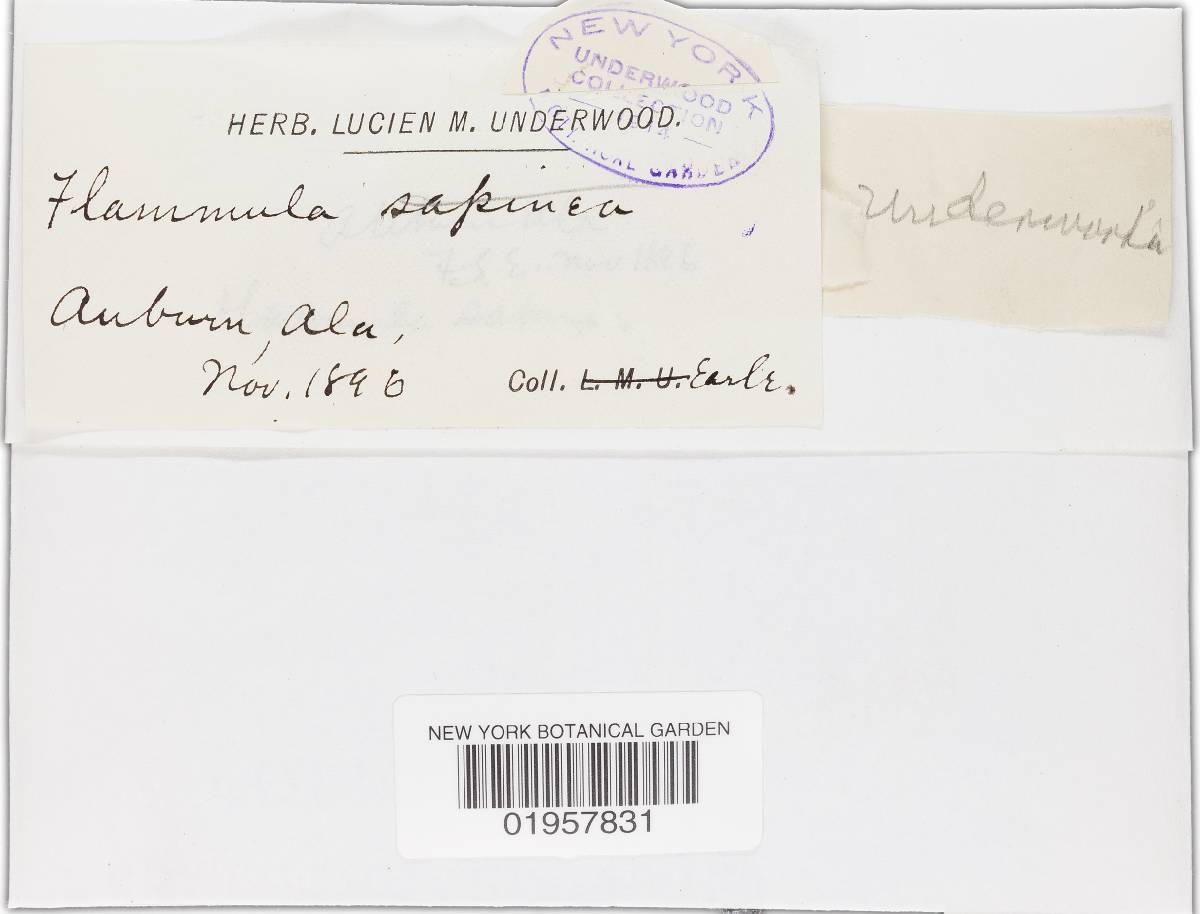 NEW YORK
UNDERWOOD
COLLECTION
BOTANICAL GARDEN
HERB. LUCIEN M. UNDERWOOD.
Flammula sapinea
Auburn, Ala,
Nov. 1896
Coll. L. M. U. Earle.
NEW YORK BOTANICAL GARDEN
01957831